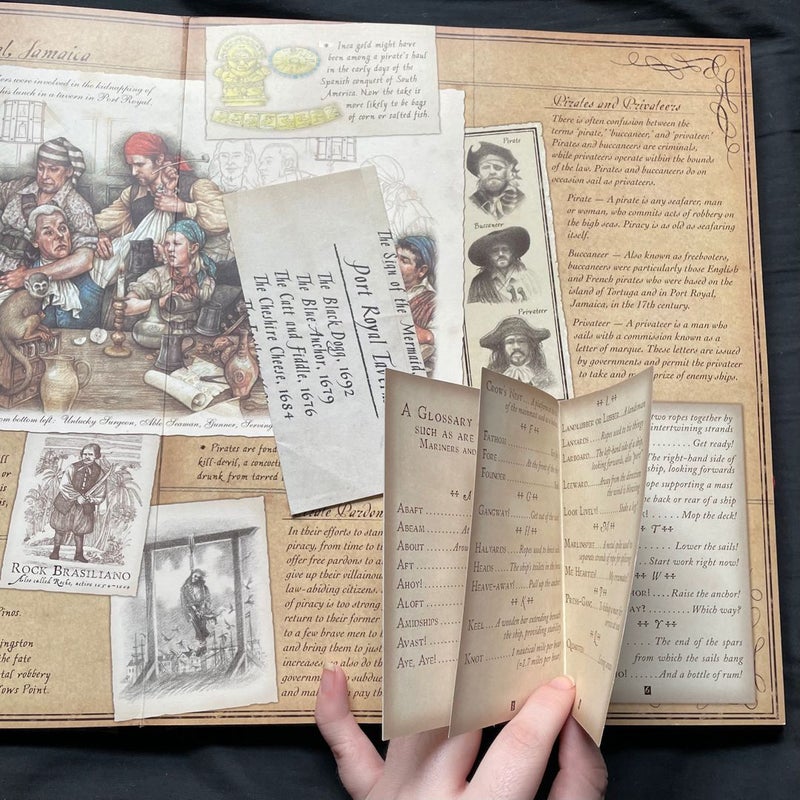 al, Jamaica
ers were involved in the kidnapping of
his lunch in a tavern in Port Royal.
* Inca gold might have
been among a pirate's haul
in the early days of the
Spanish conquest of South
America. Now the take is
more likely to be bags
of corn or salted fish.
Pirate
Buccaneer
Privateer
Pirates and Privateers
There is often confusion between the
terms 'pirate,' 'buccaneer,' and 'privateer.'
Pirates and buccaneers are criminals,
while privateers operate within the bounds
of the law. Pirates and buccaneers do on
occasion sail as privateers.
Pirate — A pirate is any seafarer, man
or woman, who commits acts of robbery on
the high seas. Piracy is as old as seafaring
itself.
Buccaneer — Also known as freebooters,
buccaneers were particularly those English
and French pirates who were based on the
island of Tortuga and in Port Royal,
Jamaica, in the 17th century.
Privateer — A privateer is a man who
sails with a commission known as a
letter of marque. These letters are issued
by governments and permit the privateer
to take and prize of enemy ships.
The Sign of the Mermaid
Port Royal
The Black Dogg, 1692
The Blue Anchor, 1679
The Catt and Fiddle, 1676
The Cheshire Cheese, 1684
om bottom left: Unlucky Surgeon, Able Seaman, Gunner, Serving
• Pirates are fond
kill-devil, a concocti
drunk from tarred
ROCK BRASILIANO
Also called Roche, active 1654-1673
inos.
ingston
the fate
tal robbery
ows Point.
Pardon
In their efforts to stam
piracy, from time to ti
offer free pardons to a
give up their villainou
law-abiding citizens.
of piracy is too strong
return to their former
to a few brave men to
and bring them to just
increases, so also do th
governments to subdu
and make pay th
A GLOSSARY
SUCH AS ARE
MARINERS AND
A
ABAFT
ABEAM
ABOUT
AFT
AHOY!
ALOFT
AMIDSHIPS
AVAST!
AYE, AYE!
CROW'S NEST
F
FATHOM
FORE
FOUNDER
G
GANGWAY!
H
HALYARDS
HEADS
HEAVE-AWAY!
K
KEEL ... A wooden bar extending beneath
the ship, providing stability
KNOT ... 1 nautical mile per hour
(=1.7 miles per hour)
L
LANDLUBBER OR LUBBER ... A landsman
LANYARDS
LARBOARD ... The left-hand side of a ship,
looking forwards, also "port"
LEEWARD ... Away from the direction
the wind is blowing
LOOK LIVELY!
M
MARLINSPIKE ... A metal spike used to
separate strands of rope for splicing
ME HEARTIES!
P
PRESS-GANG
Q
two ropes together by
intertwining strands
Get ready!
The right-hand side of
ship, looking forwards
ope supporting a mast
he back or rear of a ship
Mop the deck!
T
Lower the sails!
Start work right now!
W
HOR! ... Raise the anchor!
AY? ... Which way?
Y
The end of the spars
from which the sails hang
HO! ... And a bottle of rum!
6